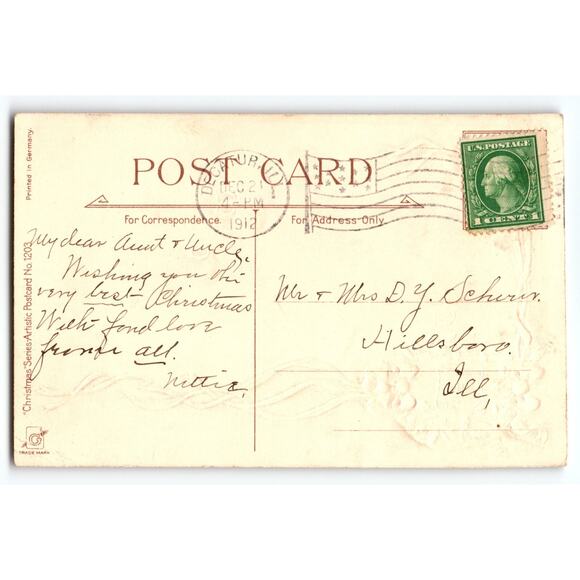 POST CARD
For Correspondence.
For Address Only.
DECATUR, ILL.
DEC 21
4-PM
1912
U.S. POSTAGE
1 CENT 1
My dear Aunt & Uncle,
Wishing you the
very best Christmas
With fond love
from all.
Nettie,
Mr & Mrs D. Y.
Hillsboro.
Ill,
Printed in Germany.
"Christmas" Series Artistic Postcard No. 1203
G
TRADE MARK